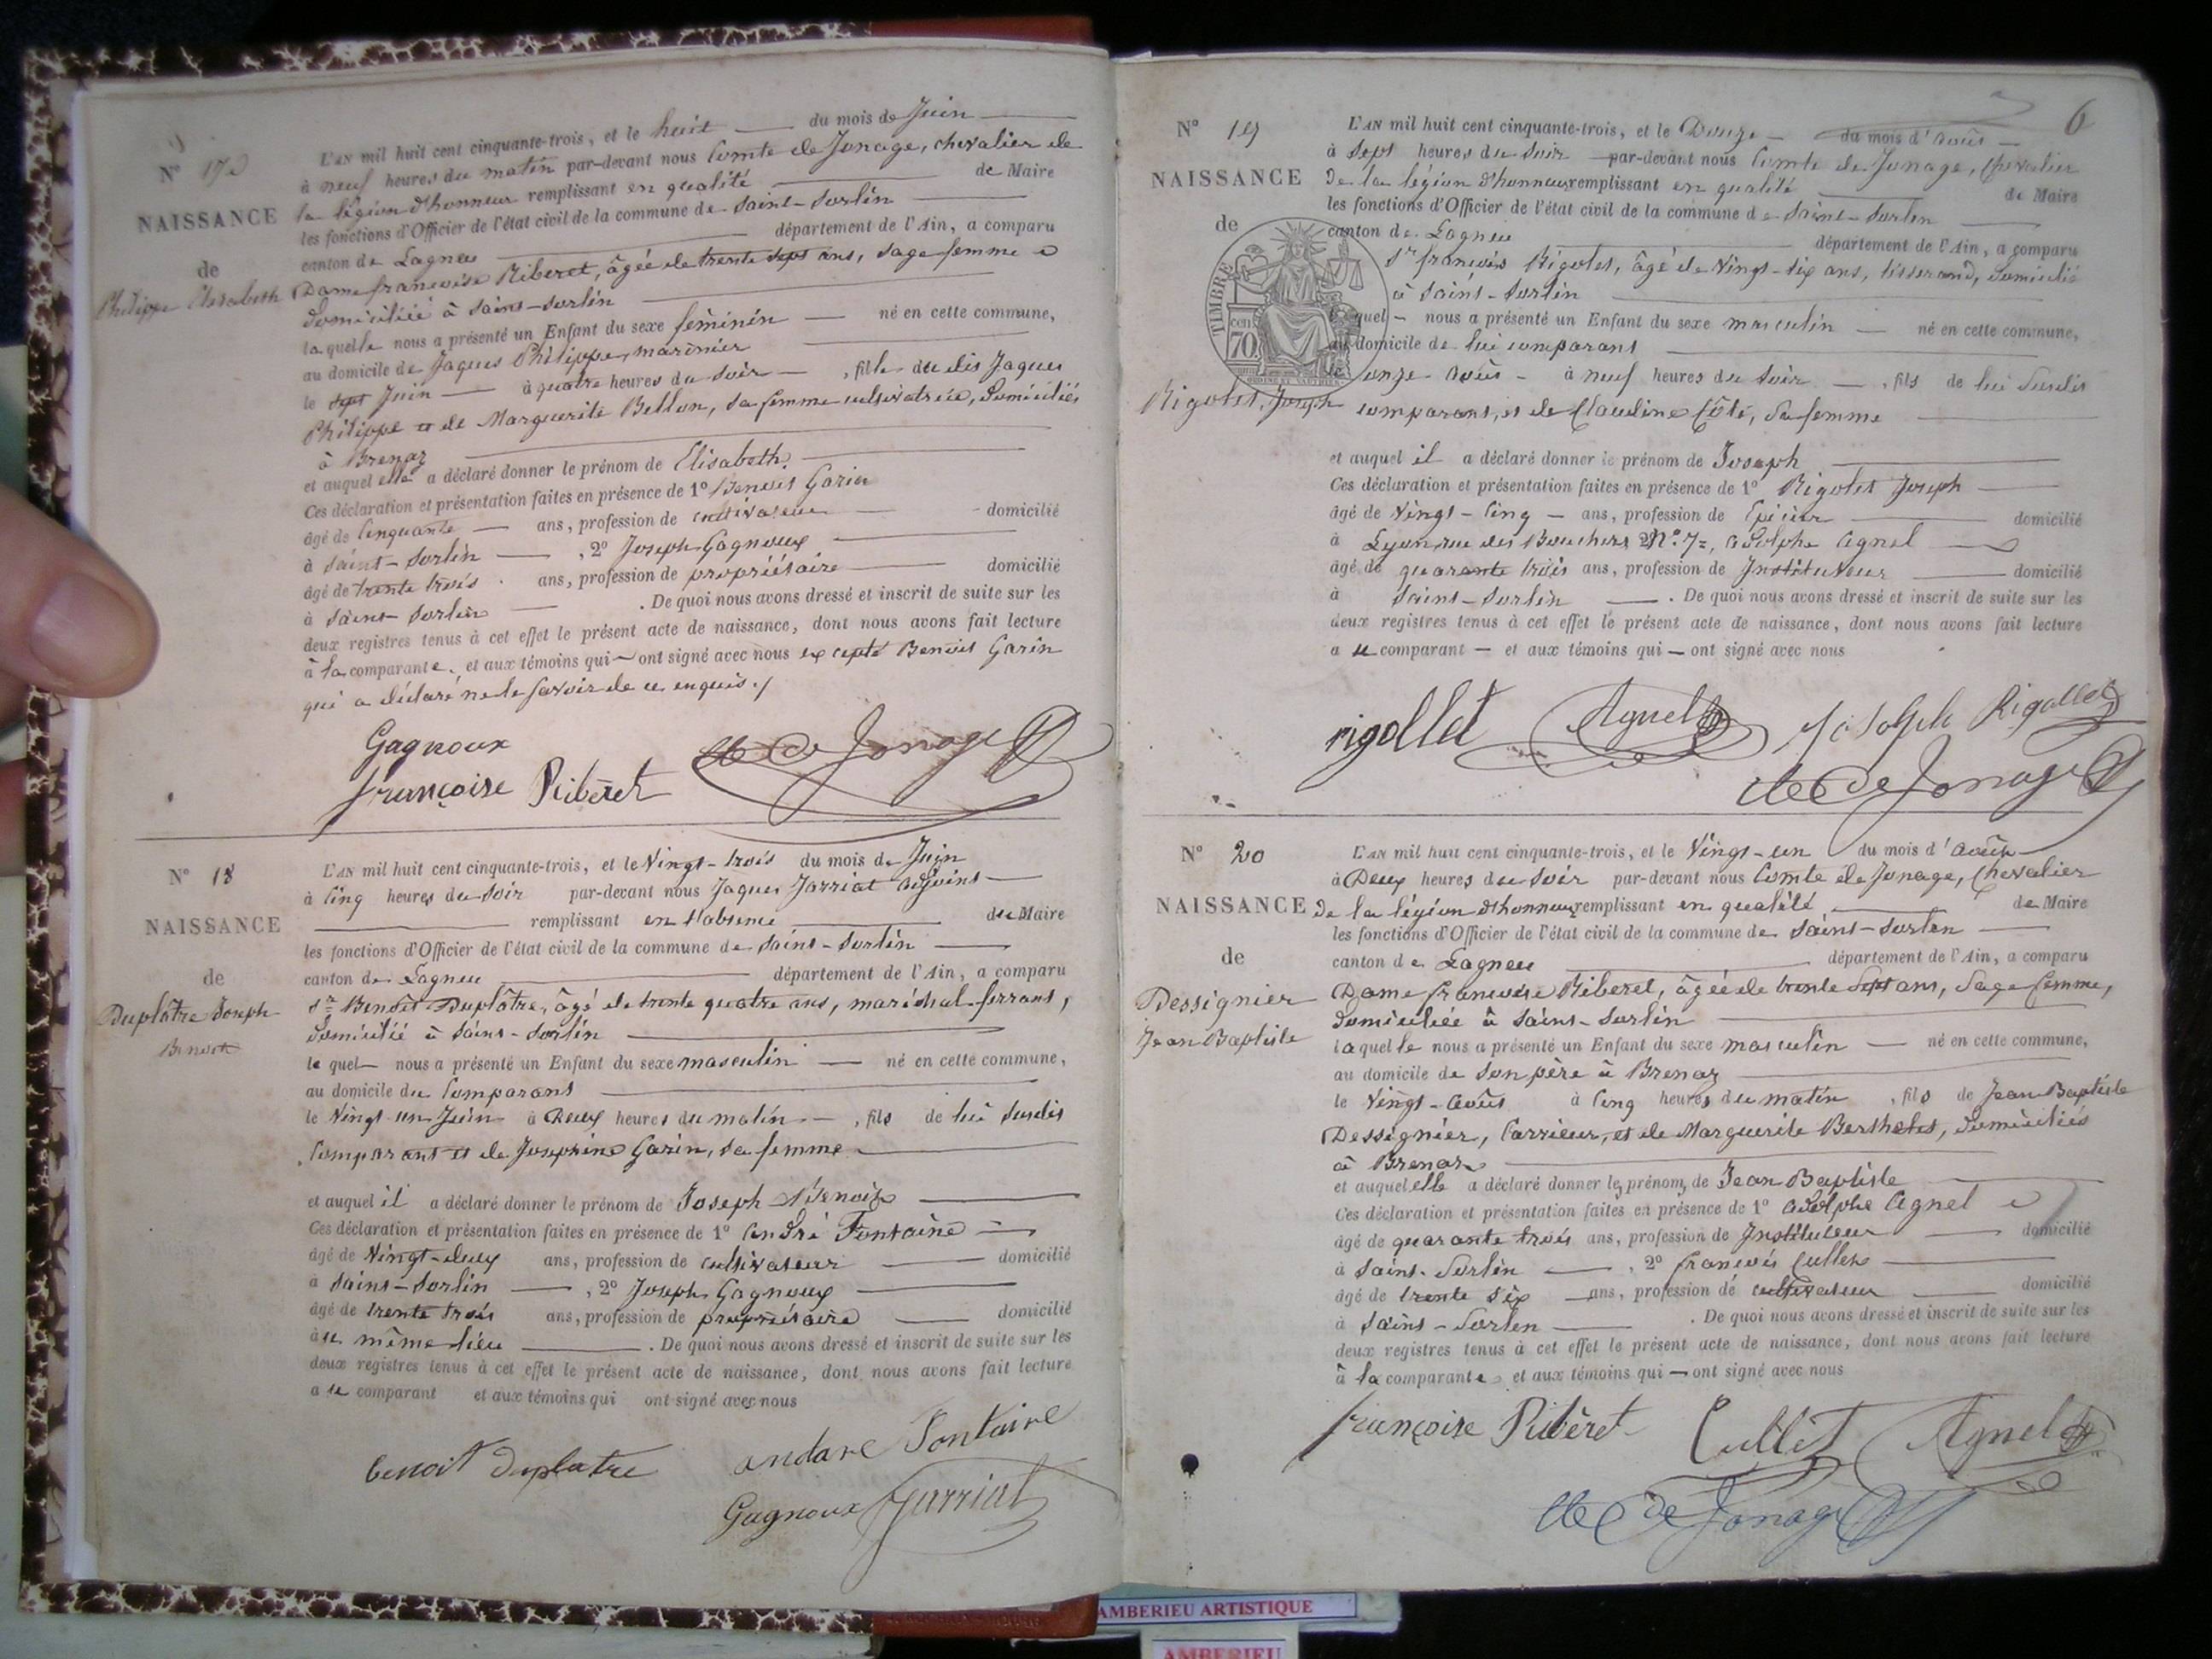 N° 17
NAISSANCE
de
Philippe Elisabeth
L'AN mil huit cent cinquante-trois, et le huit du mois de Juin
à neuf heures du matin par-devant nous Comte de Jonage, chevalier de
la légion d'honneur remplissant en qualité de Maire
les fonctions d'Officier de l'état civil de la commune de Saint-Sorlin
canton de Lagneu département de l'Ain, a comparu
Dame francoise Riberet, âgée de trente sept ans, sage femme
domiciliée à Saint-Sorlin
laquelle nous a présenté un Enfant du sexe féminin né en cette commune,
au domicile de Jaques Philippe, marinier
le sept Juin à quatre heures du soir, fille du dit Jaques
Philippe et de Marguerite Bellon, sa femme cultivatrice, domiciliés
à Brenaz
et auquel elle a déclaré donner le prénom de Elisabeth.
Ces déclaration et présentation faites en présence de 1° Benoit Garin
âgé de Cinquante ans, profession de cultivateur domicilié
à Saint-Sorlin, 2° Joseph Gagnoux
âgé de trente trois ans, profession de propriétaire domicilié
à Saint-Sorlin. De quoi nous avons dressé et inscrit de suite sur les
deux registres tenus à cet effet le présent acte de naissance, dont nous avons fait lecture
à la comparante, et aux témoins qui ont signé avec nous excepté Benoit Garin
qui a déclaré ne le savoir de ce enquis.
Gagnoux
françoise Ribèret
Cte de Jonage
N° 18
NAISSANCE
de
Duplâtre Joseph
Benoit
L'AN mil huit cent cinquante-trois, et le Vingt-trois du mois de Juin
à Cinq heures du Soir par-devant nous Jaques Jarriat adjoint
remplissant en l'absence du Maire
les fonctions d'Officier de l'état civil de la commune de Saint-Sorlin
canton de Lagneu département de l'Ain, a comparu
Sr Benoît Duplâtre, âgé de trente quatre ans, maréchal-ferrant,
domicilié à Saint-Sorlin
le quel nous a présenté un Enfant du sexe masculin né en cette commune,
au domicile du Comparant
le Vingt-un Juin à Deux heures du matin, fils de lui susdit
Comparant et de Josephine Garin, sa femme
et auquel il a déclaré donner le prénom de Joseph Benoit
Ces déclaration et présentation faites en présence de 1° André Fontaine
âgé de Vingt-deux ans, profession de cultivateur domicilié
à Saint-Sorlin, 2° Joseph Gagnoux
âgé de trente trois ans, profession de propriétaire domicilié
à ce même lieu. De quoi nous avons dressé et inscrit de suite sur les
deux registres tenus à cet effet le présent acte de naissance, dont nous avons fait lecture
a ce comparant et aux témoins qui ont signé avec nous
benoit duplatre
andare Fontaine
Gagnoux Jarriat
6
N° 19
NAISSANCE
de
TIMBRE
70
Rigolet, Joseph
L'AN mil huit cent cinquante-trois, et le Douze du mois d'Août
à Sept heures du Soir par-devant nous Comte de Jonage, Chevalier
De la légion d'honneur remplissant en qualité de Maire
les fonctions d'Officier de l'état civil de la commune de Saint-Sorlin
canton de Lagneu département de l'Ain, a comparu
Sr francois Rigolet, âgé de Vingt-six ans, tisserand, domicilié
à Saint-Sorlin
lequel nous a présenté un Enfant du sexe masculin né en cette commune,
au domicile de lui comparant
le onze Août à neuf heures du Soir, fils de lui susdit
comparant, et de Claudine Côte, sa femme
et auquel il a déclaré donner le prénom de Joseph
Ces déclaration et présentation faites en présence de 1° Rigolet Joseph
âgé de Vingt-Cinq ans, profession de Epicier domicilié
à Lyon, rue des Bouchers N°. 7, 2° Adolphe Agnel
âgé de quarante trois ans, profession de Instituteur domicilié
à Saint-Sorlin. De quoi nous avons dressé et inscrit de suite sur les
deux registres tenus à cet effet le présent acte de naissance, dont nous avons fait lecture
a ce comparant et aux témoins qui ont signé avec nous
rigollet Agnel Joseph Rigollet
Cte de Jonage
N° 20
NAISSANCE
de
Dessignier
Jean Baptiste
L'AN mil huit cent cinquante-trois, et le Vingt-un du mois d'Août
à Deux heures du Soir par-devant nous Comte de Jonage, Chevalier
de la légion d'honneur remplissant en qualité de Maire
les fonctions d'Officier de l'état civil de la commune de Saint-Sorlin
canton de Lagneu département de l'Ain, a comparu
Dame francoise Riberet, âgée de trente Sept ans, Sage femme,
domiciliée à Saint-Sorlin
laquelle nous a présenté un Enfant du sexe masculin né en cette commune,
au domicile de Son père à Brenaz
le Vingt-Août à Cinq heures du matin, fils de Jean Baptiste
Dessignier, Carrieur, et de Marguerite Berthelet, domiciliés
à Brenaz
et auquel elle a déclaré donner les prénoms de Jean Baptiste
Ces déclaration et présentation faites en présence de 1° Adolphe Agnel
âgé de quarante trois ans, profession de Instituteur domicilié
à Saint-Sorlin, 2° francois Cullet
âgé de trente six ans, profession de cultivateur domicilié
à Saint-Sorlin. De quoi nous avons dressé et inscrit de suite sur les
deux registres tenus à cet effet le présent acte de naissance, dont nous avons fait lecture
à la comparante et aux témoins qui ont signé avec nous
françoise Ribèret Cullet Agnel
Cte de Jonage
AMBERIEU ARTISTIQUE
AMBERIEU